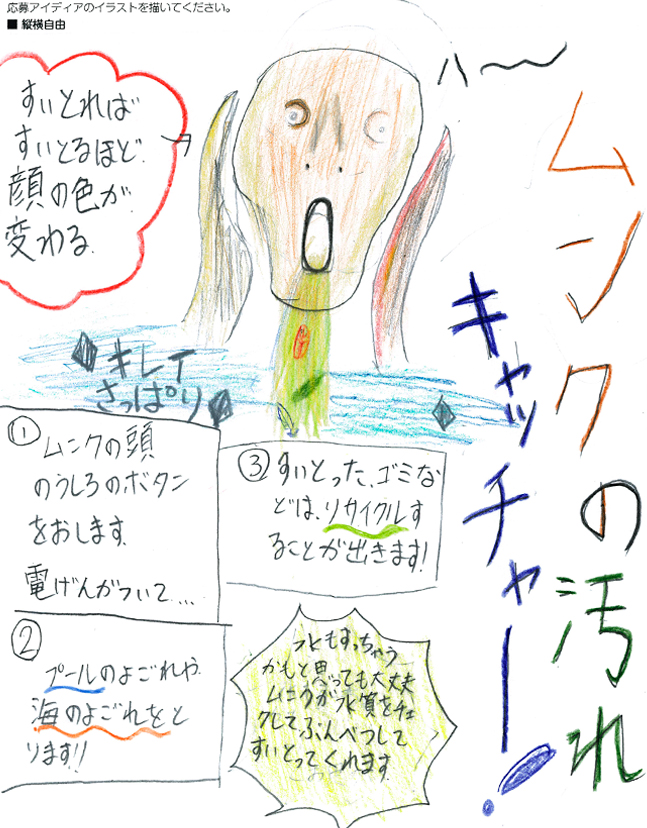 応募アイディアのイラストを描いてください。
■ 縦横自由
ハ〜〜
ムンクの汚れ
キャッチャー!
すいとれば
すいとるほど、
顔の色が、
変わる。
キレイ
さっぱり
①ムンクの頭
のうしろのボタン
をおします。
電げんがついて....
②
プールのよごれや、
海のよごれをと
ります!!
③すいとった、ゴミな
どは、リサイクルす
ることが出きます!
水もすっちゃう
かもと思っても大丈夫
ムンクが水質をチェ
クしてぶんべつして
すいとってくれます。